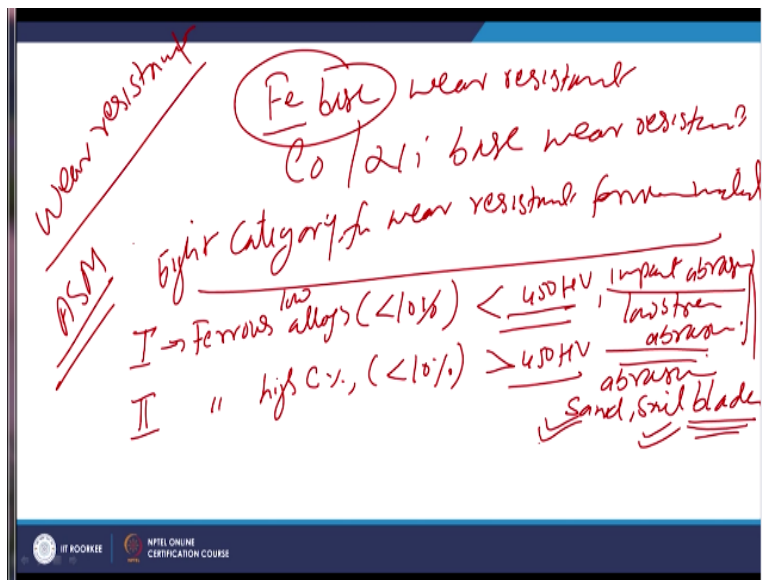 wear resistant
Fe base wear resistant
Co / Ni base wear resistant
ASM
Eight Category for wear resistant ferrous metal
I → Ferrous low alloys (<10%) < 450HV, impact abrasn
low stren abrasn.
II " high C %, (<10%) > 450HV abrasn
Sand, Soil blade
IIT ROORKEE
NPTEL ONLINE
CERTIFICATION COURSE